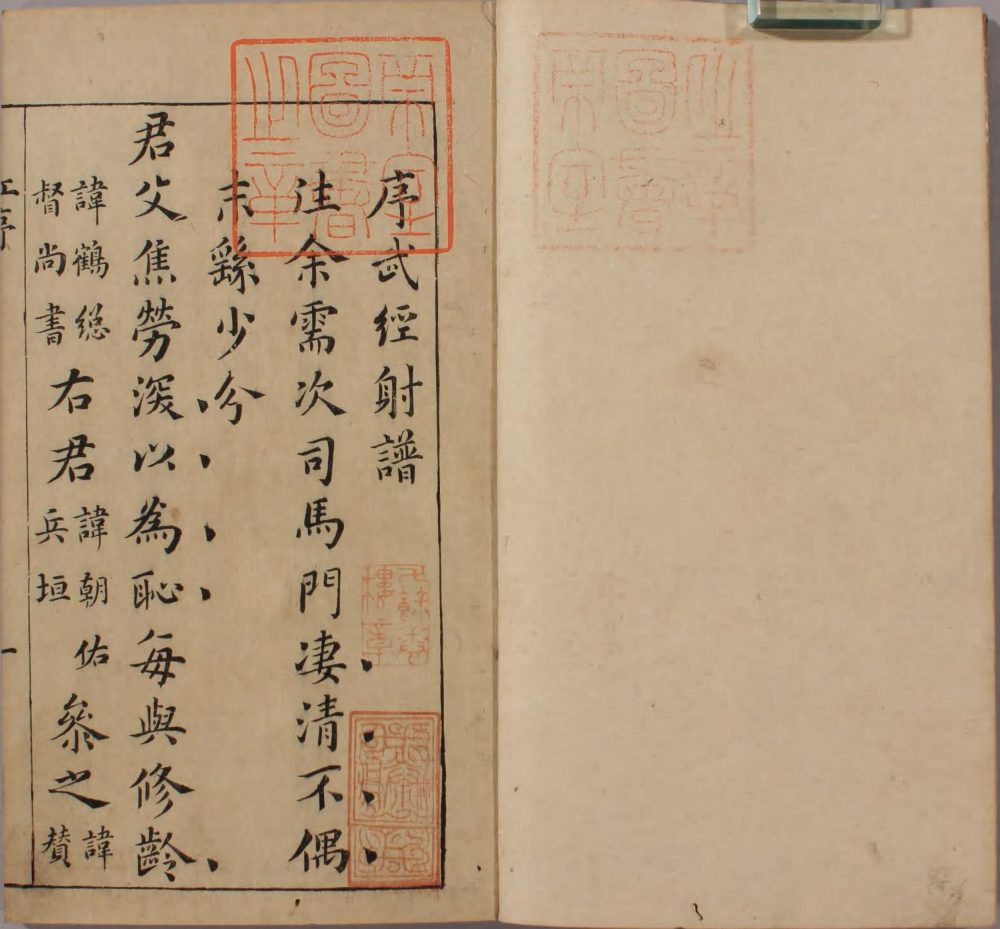 帝室圖書之章
序武經射譜
往余需次司馬門凄清不偶
末繇少分
君父焦勞深以為恥每與修齡
諱鶴總督尚書右君諱朝佑兵垣叅之諱贊
序
一